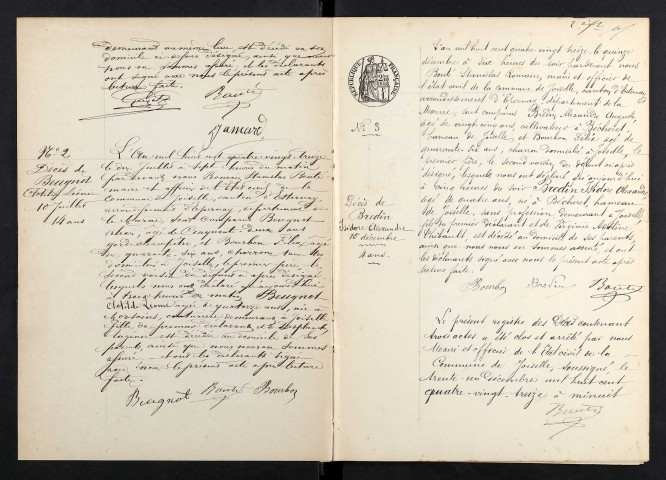 demeurant au même lieu, est décédé en son
domicile ci-dessus désigné, ainsi que nous
nous en sommes assuré, et les déclarants
ont signé avec nous le présent acte après
lecture faite.
Bouté
N° 2
Décès de
Beugnot
Clotilde Léonie
10 juillet
14 ans
L'an mil huit cent quatre-vingt-treize
le dix juillet à sept heures du matin
par devant nous Romain Stanislas Bouté
maire et officier de l'état civil de la
Commune de Joiselle, canton d'Esternay
arrondissement d'Epernay département de
la Marne, sont comparus Beugnot
âgé de Cinquante deux ans
garde champêtre, et Bourbon Félix, âgé
de quarante six ans, charron tous deux
domiciliés à Joiselle, le premier père, le
second voisin du défunt ci-après désigné
lesquels nous ont déclaré qu'aujourd'hui
à heures du matin Beugnot
Clotilde Léonie âgée de quatorze ans, née à
Morsains, couturière demeurant à Joiselle
fille du premier déclarant et de
est décédée au domicile de ses
parents, ainsi que nous nous en sommes
assuré et les déclarants signé
avec nous le présent acte après lecture
faite.
Beugnot Bouté Bourbon
N° 3
Décès de
Bredin
Isidore Alexandre
15 décembre
4 ans
L'an mil huit cent quatre-vingt treize le quinze
décembre à six heures du soir par devant nous
Bouté Stanislas Romain, maire et officier de
l'état civil de la commune de Joiselle, canton d'Esternay
arrondissement d'Epernay, département de la
Marne, sont comparus Bredin Alexandre Auguste,
âgé de vingt cinq ans, cultivateur à Bécheret,
hameau de Joiselle, et Bourbon Félix âgé de
quarante six ans, charron domicilié à Joiselle, le
premier père, le second voisin, du défunt ci-après
désigné, lesquels nous ont déclaré qu'aujourd'hui
à cinq heures du soir Bredin Isidore Alexandre
âgé de quatre ans, né à Bécheret, hameau
de Joiselle, sans profession, demeurant à Joiselle,
fils du premier déclarant et de Virginie
Thibault est décédé au domicile de ses parents,
ainsi que nous nous en sommes assuré et ont
les déclarants signé avec nous le présent acte après
lecture faite.
Bourbon Bredin Bouté
Le présent registre des Décès contenant
trois actes a été clos et arrêté par nous
Maire et officier de l'Etat civil de la
Commune de Joiselle, soussigné, le
trente-un Décembre mil huit cent
quatre-vingt-treize à minuit
Bouté